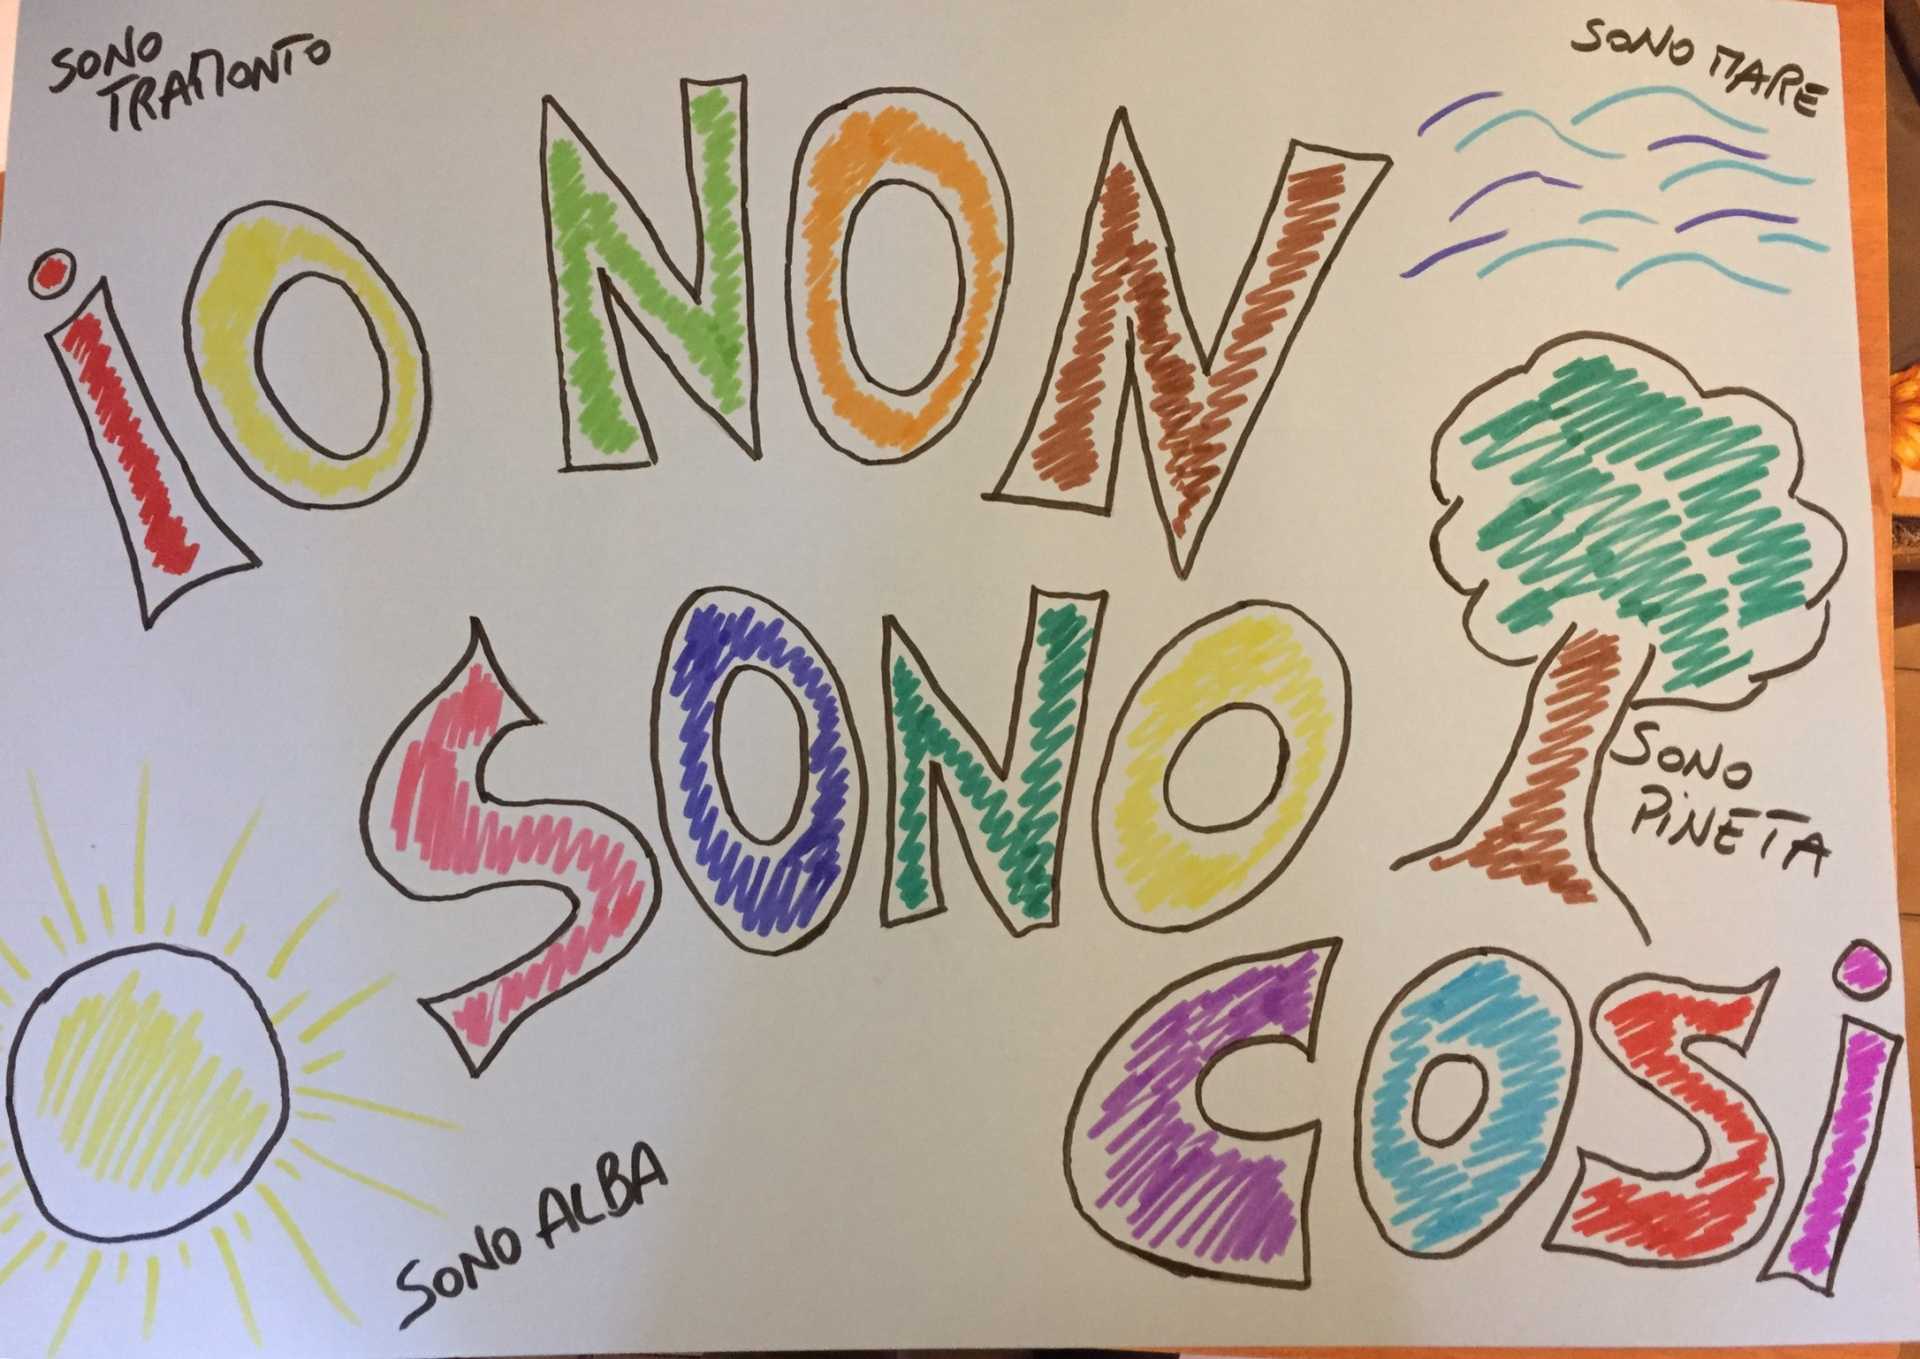 SONO
TRAMONTO
SONO MARE
iO NON
SONO
COSi
SONO
PiNETA
SONO ALBA